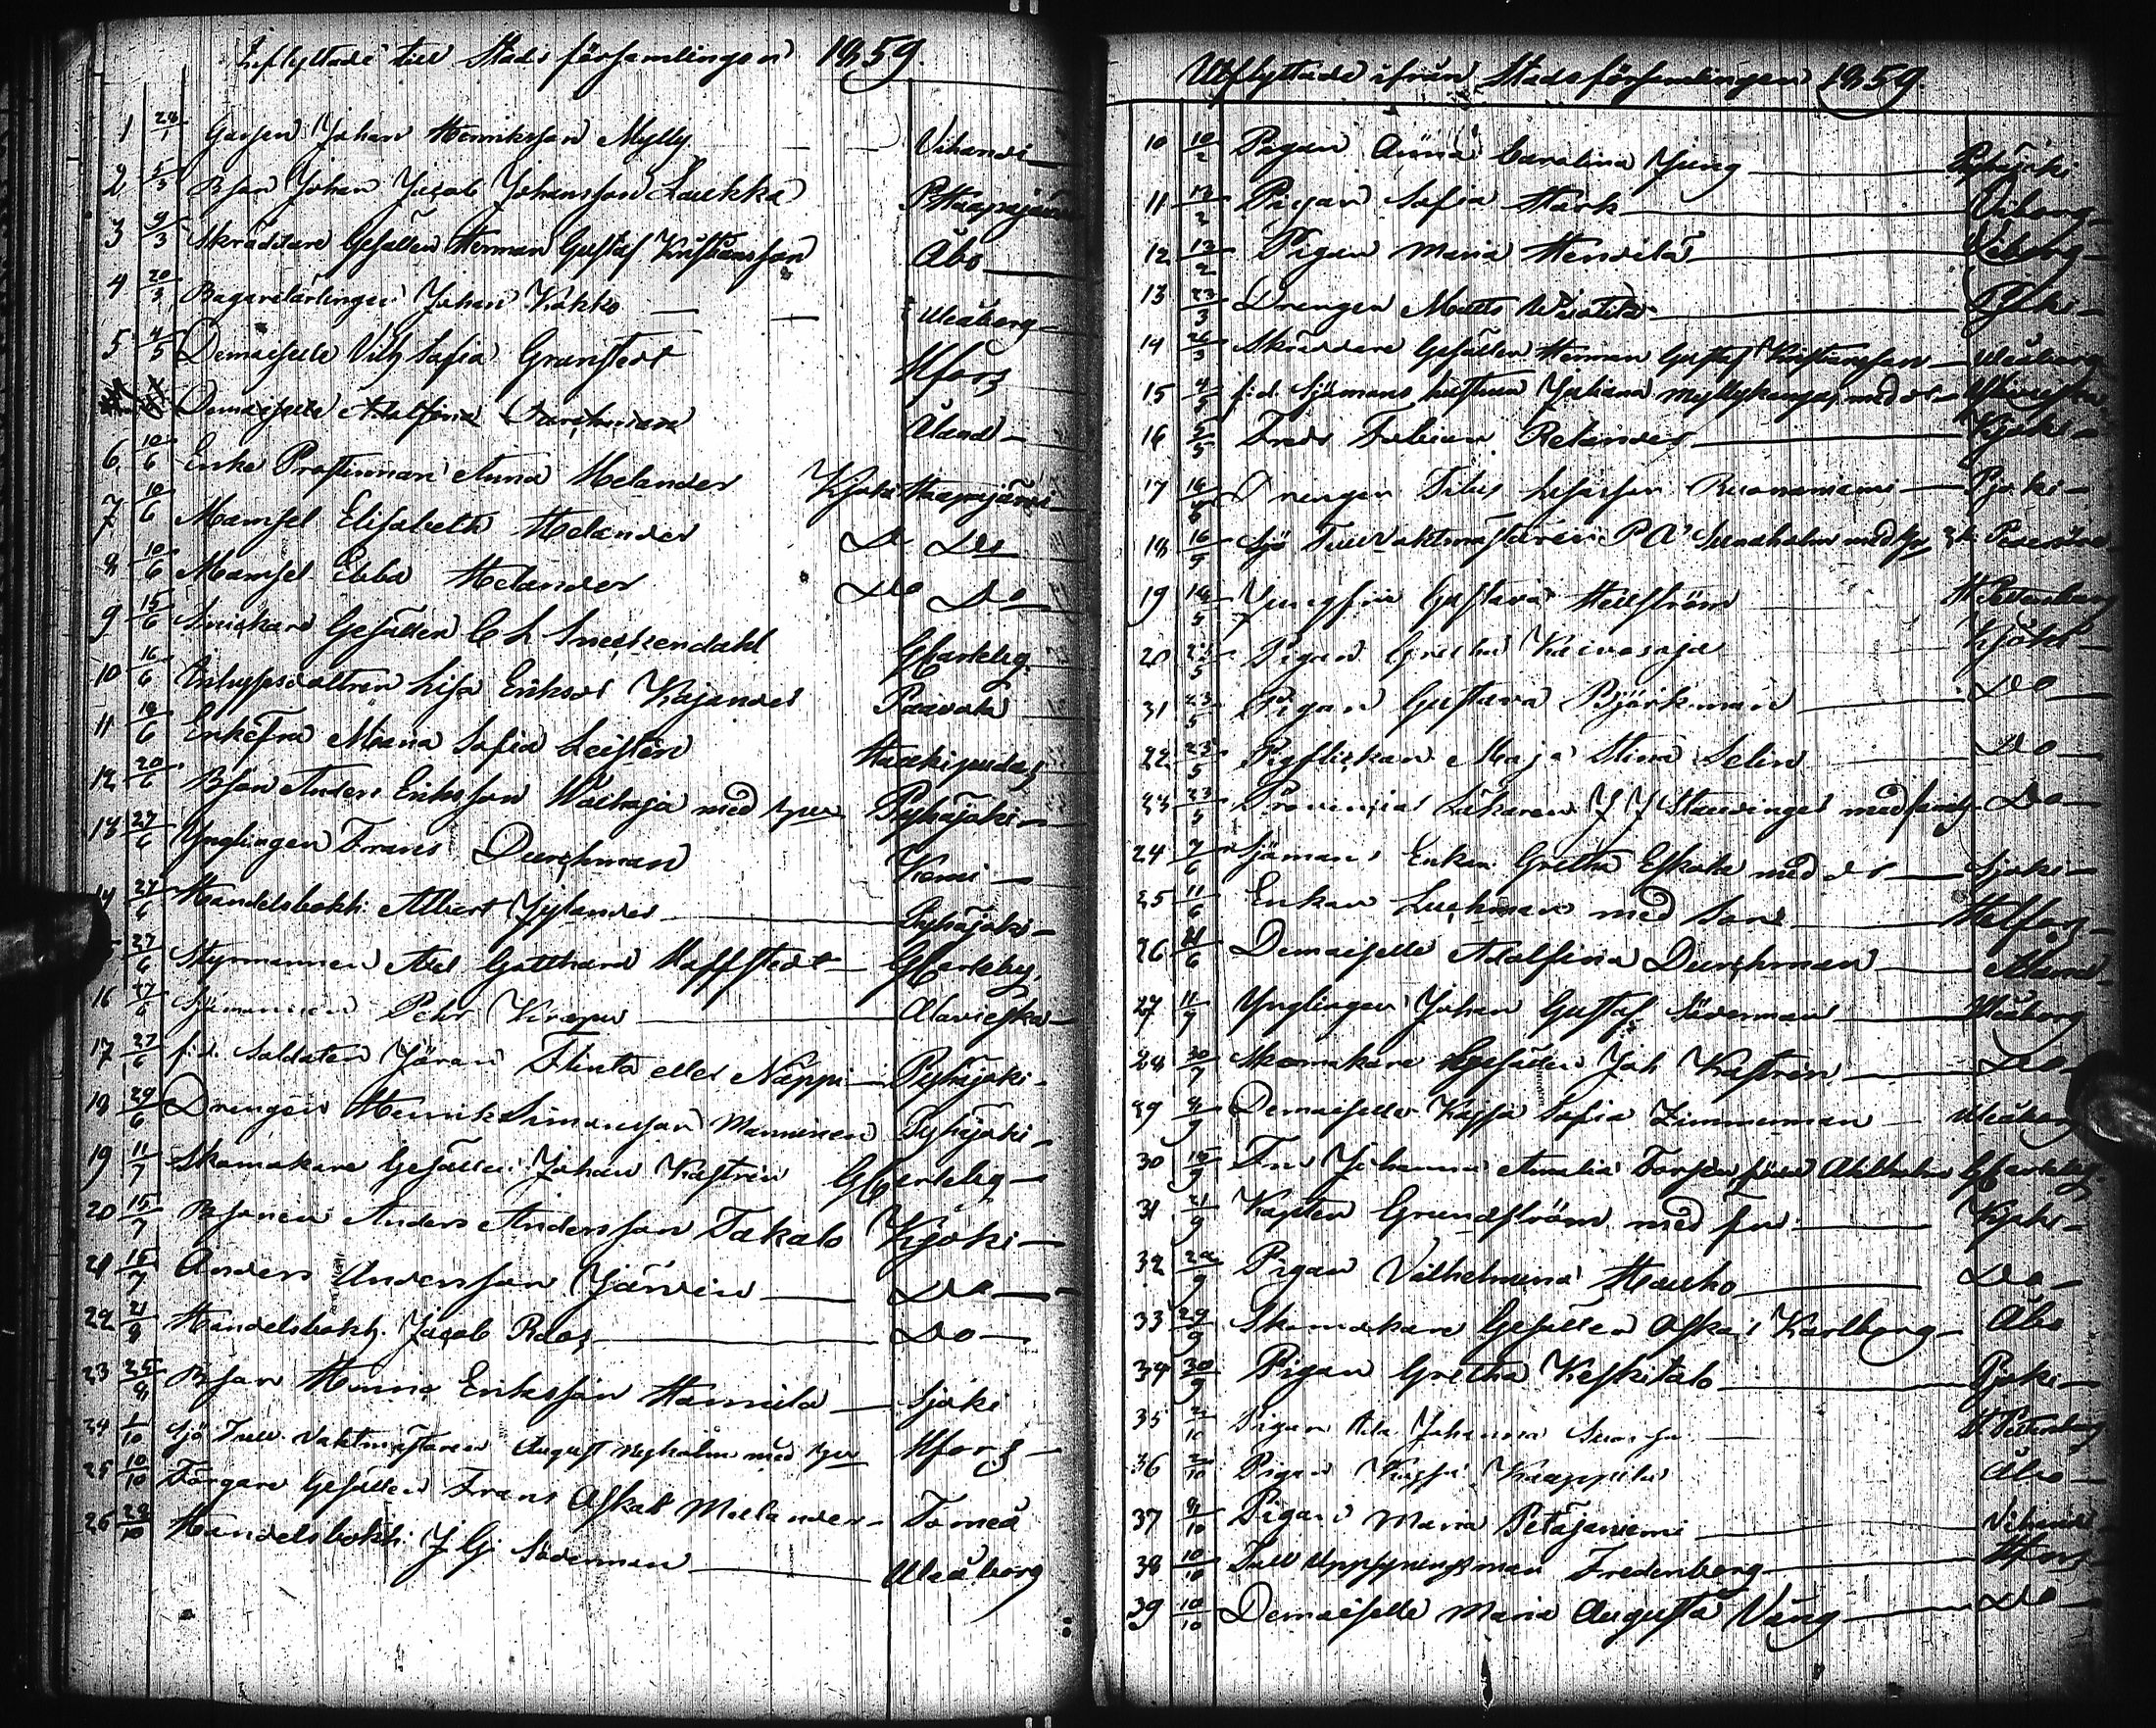 Inflyttade till Stadsförsamlingen 1859.
1 28/1 Gossen Johan Henriksson Mylly Vihandi
2 5/3 Bson Johan Jacob Johansson Laukka P Haapajärvi
3 9/3 Skräddare Gesällen Herman Gustaf Kristiansson Åbo
4 20/3 Bagarelärlingen Johan Kokko Uleåborg
5 4/5 Demoiselle Vilh Sofia Granstedt Hfors
Demoiselle Adolfina Durchman Åland
6 10/6 Enke Prostinnan Anna Helander Kjoki Haapajärvi
7 10/6 Mamsel Elisabeth Helander Do Do
8 10/6 Mamsel Ebba Helander Do Do
9 15/6 Snickare Gesällen C L Sneckendahl GCarleby
10 16/6 Lisa Eriksdr Kajander Paavola
11 18/6 Enkefru Maria Sofia Leisten Haukipudas
12 20/6 Bson Anders Eriksson med hu Pyhäjoki
13 27/6 Ynglingen Frans Durchman Kemi
14 27/6 Handelsbokh. Albert Jylander Pyhäjoki
27/6 Styrmannen Axel Gotthard Haffstedt GCarleby
16 27/6 Sjömannen Pehr Alavieska
17 27/6 f.d. Soldaten Jöran Flinta eller Näppi Pyhäjoki
18 29/6 Drengen Henrik Simonsson Manninen Pyhäjoki
19 11/7 Skomakare Gesällen Johan Kastrén GCarleby
20 15/7 Bsonen Anders Andersson Takalo Kjoki
21 15/7 Anders Andersson Järvin Do
22 21/8 Handelsbokh. Jacob Roos Do
23 25/8 Bson Eriksson Hannila Sjoki
24 1/10 Sjö Tull Vaktmästaren August Nyholm med hu Hfors
25 10/10 Färgare Gesällen Frans Oskar Melander Torneå
26 28/10 Handelsbokh. J G Söderman Uleåborg
Utflyttade ifrån Stadsförsamlingen 1859.
10 10/2 Pigan Anna Carolina Ljung Pyhäjoki
11 13/2 Pigan Sofia Stark Viborg
12 13/2 Pigan Maria Hendilä Viborg
13 23/3 Drengen Matts Pjoki
14 26/3 Skräddare Gesällen Herman Gustaf Kristiansson Uleåborg
15 4/5 f.d. Sjömans hustrun Johana Myllykangas med dr
16 5/5 Fabian Relander Kjoki
17 16/5 Drengen Titus Ruonaniemi Pjoki
18 16/5 Sjö Tull Vaktmästaren P A Sundholm med hu
19 18/5 Jungfru Gustava Hellström St Petersburg
20 21/5 Pigan Greta Kaivosoja Kjoki
31 23/5 Pigan Gustava Björkman Do
22 23/5 Pigflickan Maja Stina Selin Do
23 23/5 Provincial Läkaren J J Staudinger med familj Do
24 7/6 Sjömans Enkan Gretha Eskola med dr Sjoki
25 11/6 Enkan Luchman med son Helfors
26 21/6 Demoiselle Adolfina Durchman
27 11/7 Ynglingen Johan Gustaf Söderman Uleåborg
28 30/7 Skomakare Gesällen Joh Kastrén Do
29 8/9 Demoiselle Kajsa Sofia Zimmerman Uleåborg
30 16/9 Fru Johanna Amalia Forsén född Ahlholm GCarleby
31 21/9 Kapten Grundström med fru Kjoki
32 22/9 Pigan Vilhelmina Hauho Do
33 29/9 Skomakare Gesällen Oskar Karlberg Åbo
34 30/9 Pigan Gretha Keskitalo Pjoki
35 2/10 Pigan Johanna St Petersburg
36 2/10 Pigan Kajsa Kaappila Åbo
37 8/10 Pigan Maria Petäjäniemi Vihandi
38 10/10 Tull Uppsyningsman Fredenberg Hfors
39 10/10 Demoiselle Maria Augusta Vang Do